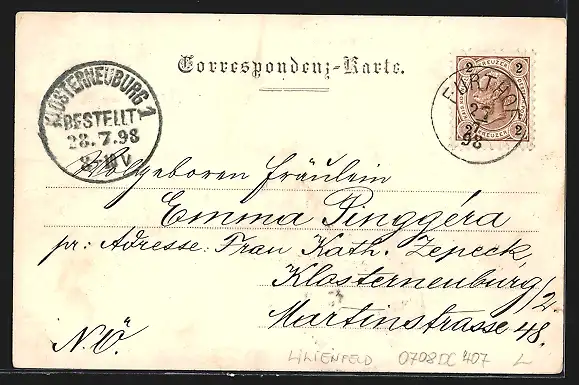 Correspondenz-Karte.
KLOSTERNEUBURG 1
BESTELLT
28.7.98
8-10V
2 KREUZER 2
FURTHOF
27
7
98
2 KREUZER 2
Wolgeboren Fräulein
Emma Pinggéra
pr: Adresse: Frau Kath. Zepeck,
Klosterneuburg/2
Martinstrasse 48.
N.Ö.
LILIENFELD 0708DC407 L